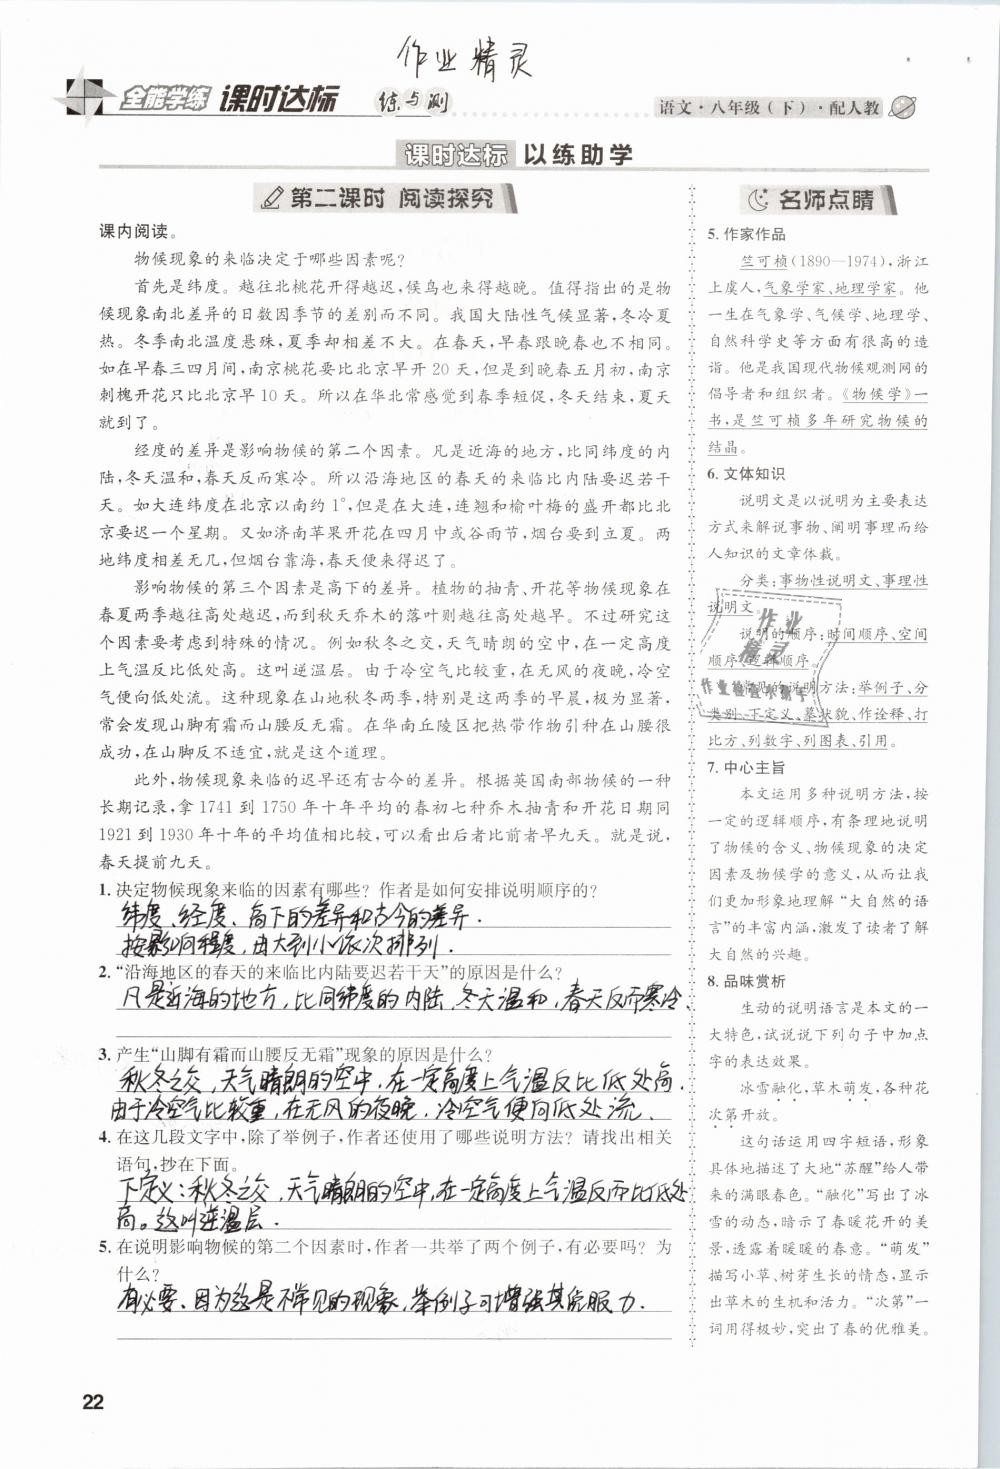 作业精灵
全能学练 课时达标 练与测
语文·八年级(下)·配人教
课时达标 以练助学
第二课时 阅读探究
课内阅读。
物候现象的来临决定于哪些因素呢?
首先是纬度。越往北桃花开得越迟,候鸟也来得越晚。值得指出的是物
候现象南北差异的日数因季节的差别而不同。我国大陆性气候显著,冬冷夏
热。冬季南北温度悬殊,夏季却相差不大。在春天,早春跟晚春也不相同。
如在早春三四月间,南京桃花要比北京早开 20 天,但是到晚春五月初,南京
刺槐开花只比北京早 10 天。所以在华北常感觉到春季短促,冬天结束,夏天
就到了。
经度的差异是影响物候的第二个因素。凡是近海的地方,比同纬度的内
陆,冬天温和,春天反而寒冷。所以沿海地区的春天的来临比内陆要迟若干
天。如大连纬度在北京以南约 1°,但是在大连,连翘和榆叶梅的盛开都比北
京要迟一个星期。又如济南苹果开花在四月中或谷雨节,烟台要到立夏。两
地纬度相差无几,但烟台靠海,春天便来得迟了。
影响物候的第三个因素是高下的差异。植物的抽青、开花等物候现象在
春夏两季越往高处越迟,而到秋天乔木的落叶则越往高处越早。不过研究这
个因素要考虑到特殊的情况。例如秋冬之交,天气晴朗的空中,在一定高度
上气温反比低处高。这叫逆温层。由于冷空气比较重,在无风的夜晚,冷空
气便向低处流。这种现象在山地秋冬两季,特别是这两季的早晨,极为显著,
常会发现山脚有霜而山腰反无霜。在华南丘陵区把热带作物引种在山腰很
成功,在山脚反不适宜,就是这个道理。
此外,物候现象来临的迟早还有古今的差异。根据英国南部物候的一种
长期记录,拿 1741 到 1750 年十年平均的春初七种乔木抽青和开花日期同
1921 到 1930 年十年的平均值相比较,可以看出后者比前者早九天。就是说,
春天提前九天。
1. 决定物候现象来临的因素有哪些? 作者是如何安排说明顺序的?
纬度、经度、高下的差异和古今的差异.
按影响程度,由大到小依次排列.
2. “沿海地区的春天的来临比内陆要迟若干天”的原因是什么?
凡是近海的地方,比同纬度的内陆,冬天温和,春天反而寒冷.
3. 产生“山脚有霜而山腰反无霜”现象的原因是什么?
秋冬之交,天气晴朗的空中,在一定高度上气温反比低处高.
由于冷空气比较重,在无风的夜晚,冷空气便向低处流.
4. 在这几段文字中,除了举例子,作者还使用了哪些说明方法? 请找出相关
语句,抄在下面。
下定义:秋冬之交,天气晴朗的空中,在一定高度上气温反而比低处
高。这叫逆温层.
5. 在说明影响物候的第二个因素时,作者一共举了两个例子,有必要吗? 为
什么?
有必要.因为这是不常见的现象,举例子可增强其说服力.
22
名师点睛
5. 作家作品
竺可桢(1890—1974),浙江
上虞人,气象学家、地理学家。他
一生在气象学、气候学、地理学、
自然科学史等方面有很高的造
诣。他是我国现代物候观测网的
倡导者和组织者。《物候学》一
书,是竺可桢多年研究物候的
结晶。
6. 文体知识
说明文是以说明为主要表达
方式来解说事物、阐明事理而给
人知识的文章体裁。
分类:事物性说明文、事理性
说明文。
说明的顺序:时间顺序、空间
顺序、逻辑顺序。
常见的说明方法:举例子、分
类别、下定义、摹状貌、作诠释、打
比方、列数字、列图表、引用。
7. 中心主旨
本文运用多种说明方法,按
一定的逻辑顺序,有条理地说明
了物候的含义、物候现象的决定
因素及物候学的意义,从而让我
们更加形象地理解“大自然的语
言”的丰富内涵,激发了读者了解
大自然的兴趣。
8. 品味赏析
生动的说明语言是本文的一
大特色,试说说下列句子中加点
字的表达效果。
冰雪融化,草木萌发,各种花
次第开放。
这句话运用四字短语,形象
具体地描述了大地“苏醒”给人带
来的满眼春色。“融化”写出了冰
雪的动态,暗示了春暖花开的美
景,透露着暖暖的春意。“萌发”
描写小草、树芽生长的情态,显示
出草木的生机和活力。“次第”一
词用得极妙,突出了春的优雅美。
作业
精灵